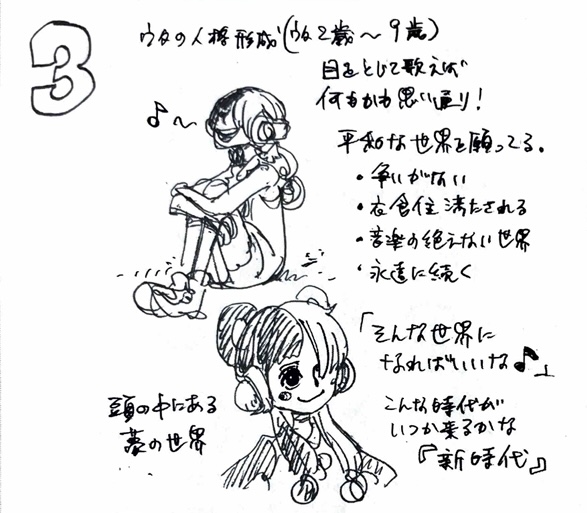 3
ウタの人格形成(ウタ2歳〜9歳)
目をとじて歌えば
何もかも思い通り!
♪〜
平和な世界を願ってる。
・争いがない
・衣食住満たされる
・音楽の絶えない世界
・永遠に続く
「そんな世界に
なればいいな♪」
頭の中にある
夢の世界
こんな時代が
いつか来るかな
『新時代』